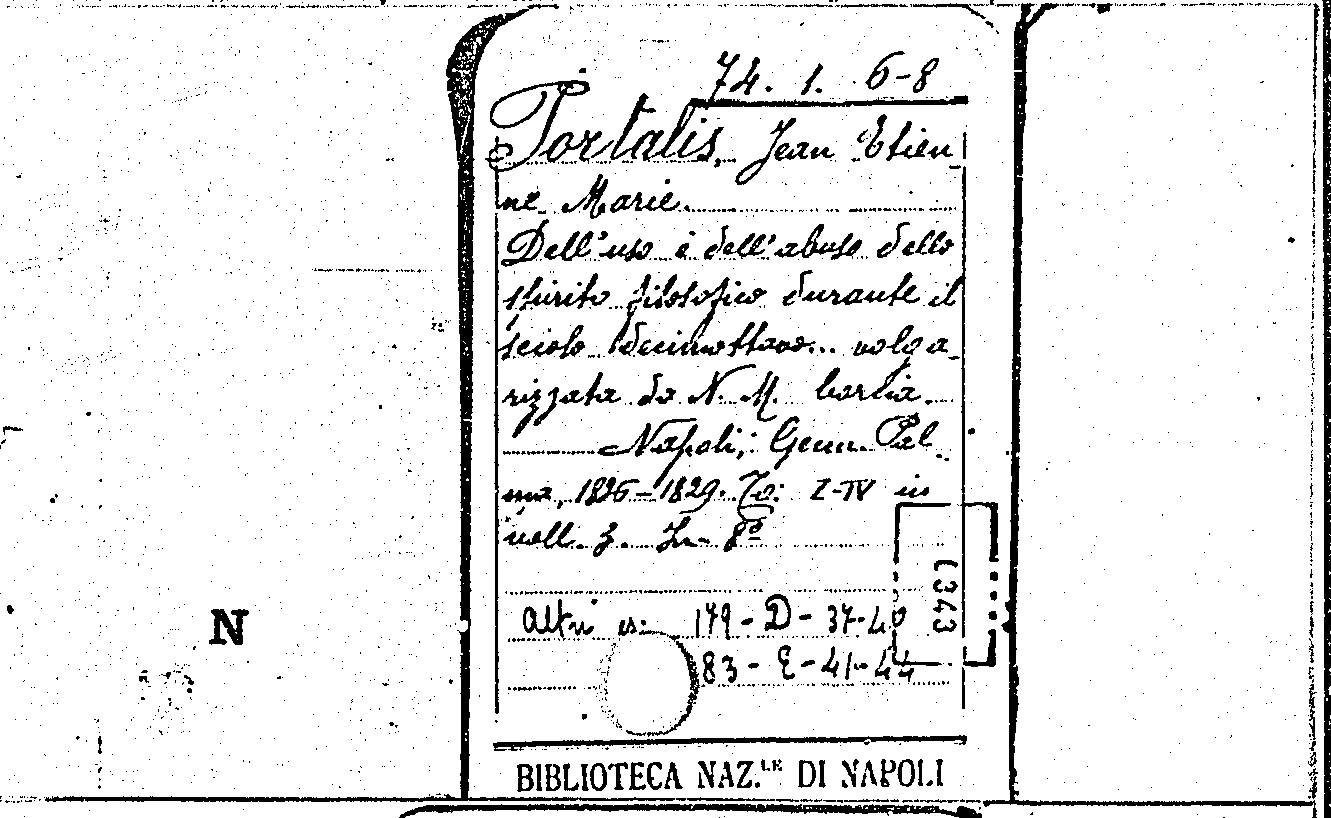 74. 1. 6-8
Portalis, Jean Etien
ne Marie.
Dell'uso e dell'abuso dello
spirito filosofico durante il
secolo decimottavo... volga
rizzata da N. M. Corlia.
Napoli, Genn. Pal
ma, 1826-1829. To: I-IV in
voll. 3. In-8º
N
altri es: 179-D-37-40
83-E-41-44
(343
BIBLIOTECA NAZ.LE DI NAPOLI